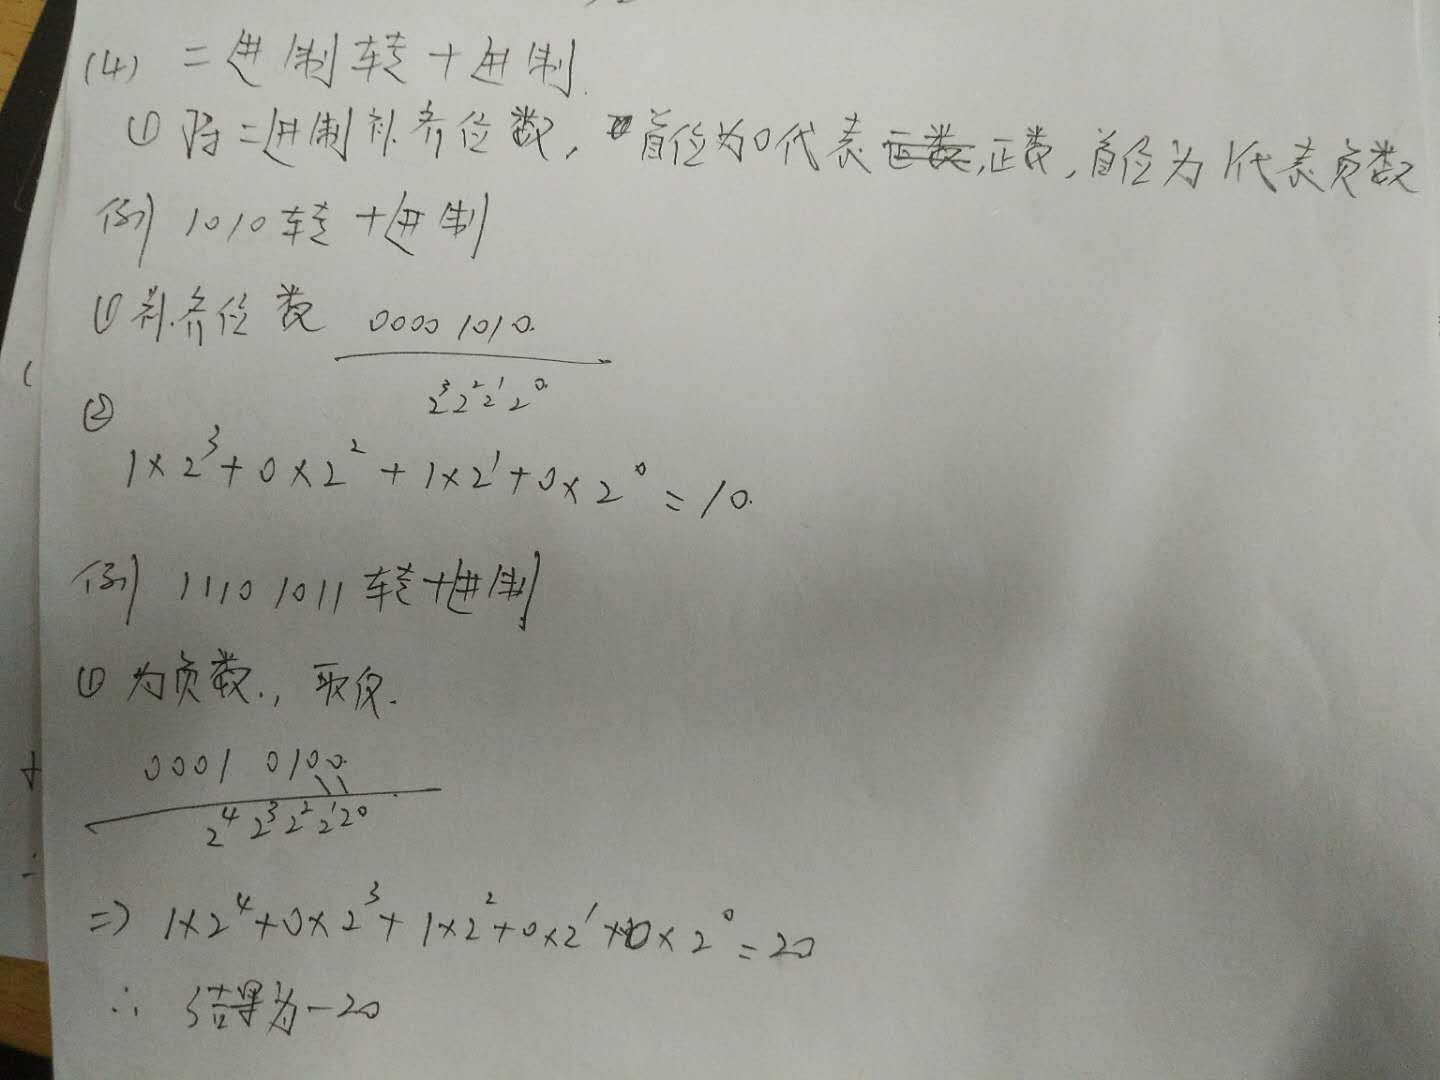 (4) 二进制转十进制.
① 将二进制补齐位数, 首位为0代表正数, 首位为1代表负数
例 1010转十进制
① 补齐位数 0000 1010.
2³ 2² 2¹ 2⁰
②
1×2³+0×2²+1×2¹+0×2⁰=10.
例 1110 1011 转十进制
① 为负数., 取反.
0001 0100
2⁴ 2³ 2² 2¹ 2⁰
=> 1×2⁴+0×2³+1×2²+0×2¹+0×2⁰=20
∴ 结果为-20